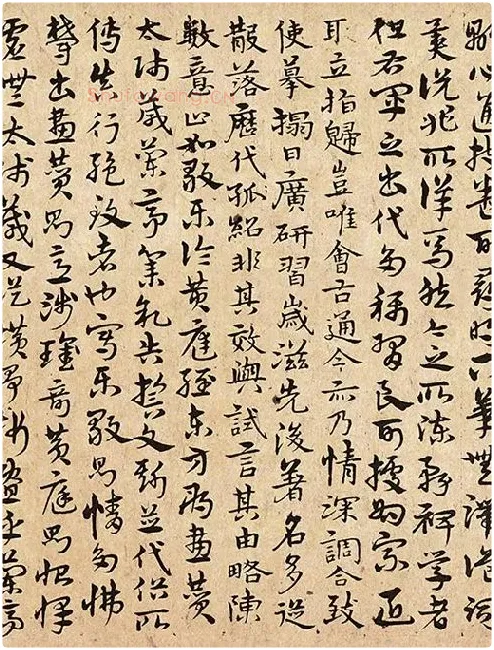 顯心通披卷可明下筆無滯詭詞
異說非所詳焉然今之所陳務裨學者
但右軍之書代多稱習良可據為宗匠
取立指歸豈唯會古通今亦乃情深調合致
使摹搨日廣研習歲滋先後著名多從
散落歷代孤紹非其效與試言其由略陳
數意止如樂毅論黃庭經東方朔畫讚
太師箴蘭亭集序告誓文斯並代俗所
傳真行絕致者也寫樂毅則情多怫
鬱書畫讚則意涉瓌奇黃庭則怡懌
虛無太師箴又從橫爭折暨乎蘭亭